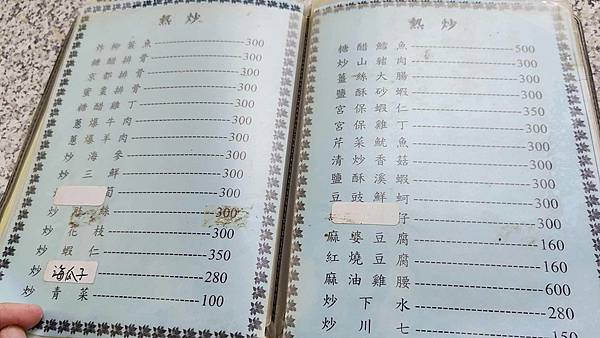 熱炒
炸柳葉魚 300
糖醋排骨 300
京都排骨 300
蜜棗排骨 300
糖醋雞丁 300
蔥爆牛肉 300
蔥爆羊肉 300
炒海參 300
炒三鮮 300
筍 300
炒 絲 300
炒花枝 300
炒蝦仁 350
炒海瓜子 280
炒青菜 100
熱炒
糖醋鱈魚 500
炒山豬肉 300
薑絲大腸 300
鹽酥砂蝦 300
宮保蝦仁 350
宮保雞丁 300
芹菜魷魚 300
清炒香菇 300
鹽酥溪蝦 300
豆豉鮮蚵 300
仔 300
麻婆豆腐 160
紅燒豆腐 160
麻油雞腰 600
炒下水 280
炒川七 150